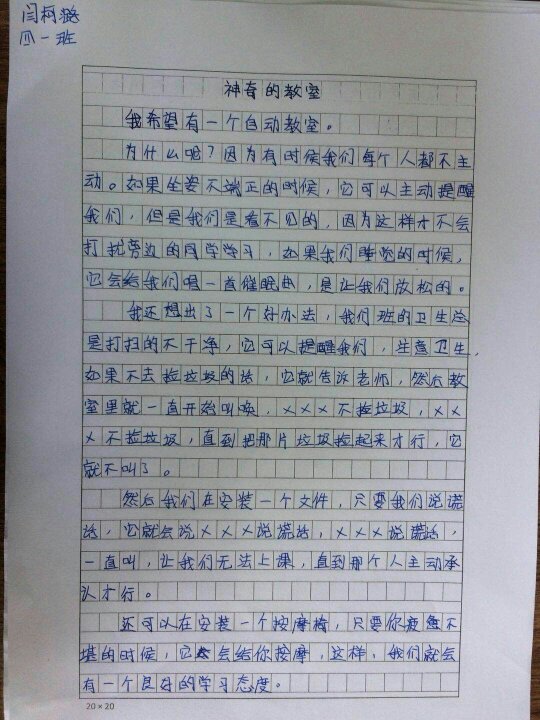 闫柯璐
四一班
神奇的教室
我希望有一个自动教室。
为什么呢？因为有时侯我们每个人都不主
动。如果坐姿不端正的时候，它可以主动提醒
我们，但是我们是看不见的，因为这样才不会
打扰旁边的同学学习，如果我们睡觉的时候，
它会给我们唱一首催眠曲，是让我们放松的。
我还想出了一个好办法，我们班的卫生总
是打扫的不干净，它可以提醒我们，注意卫生，
如果不去捡垃圾的话，它就告诉老师，然后教
室里就一直开始叫唤，×××不捡垃圾，××
×不捡垃圾，直到把那片垃圾捡起来才行，它
就不叫了。
然后我们在安装一个文件，只要我们说谎
话，它就会说×××说谎话，×××说谎话，
一直叫，让我们无法上课，直到那个人主动承
认才行。
还可以在安装一个按摩椅，只要你疲惫不
堪的时候，它会给你按摩，这样，我们就会
有一个良好的学习态度。
20×20